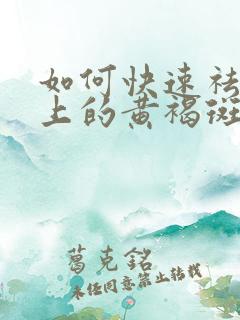 如何快速祛
上的黄褐斑
葛克銘
未经同意禁止转载